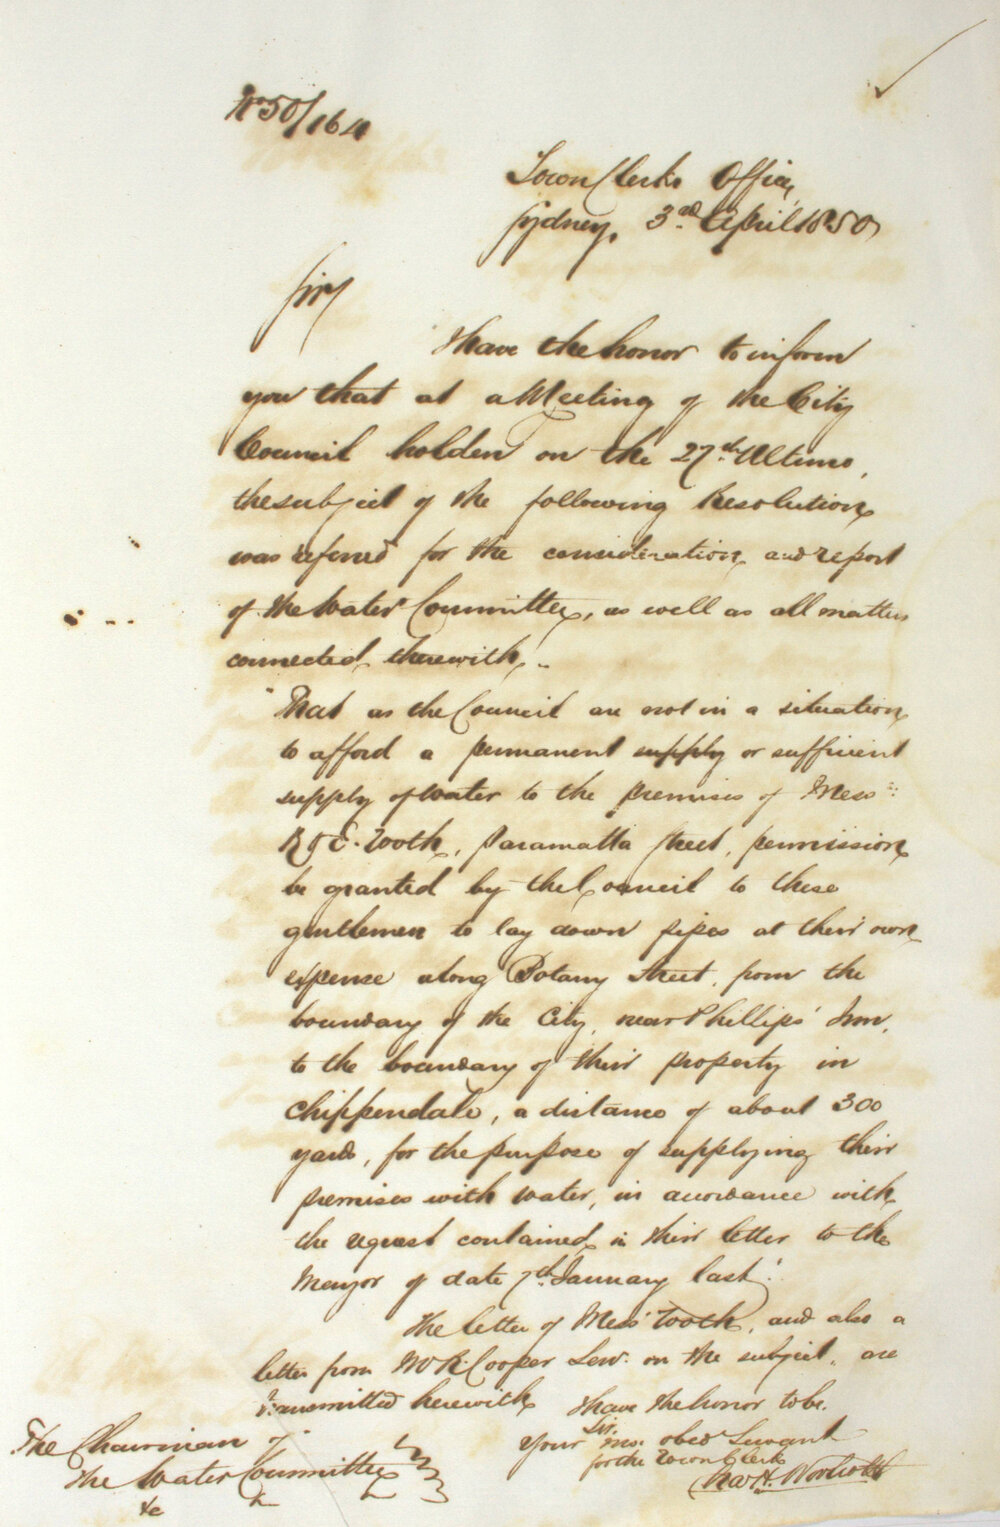 No 50/164
Town Clerks Office,
Sydney, 3rd April 1850
Sir
I have the honor to inform
you that at a Meeting of the City
Council holden on the 27th Ultimo,
the subject of the following Resolution
was referred for the consideration and report
of the Water Committee, as well as all matters
connected therewith.
"That as the Council are not in a situation
to afford a permanent supply or sufficient
supply of water to the premises of Messrs
R & E. Tooth, Paramatta Street, permission
be granted by the Council to these
gentlemen to lay down pipes at their own
expense along Botany Street, from the
boundary of the City, near Phillips' Inn,
to the boundary of their property in
Chippendale, a distance of about 300
yards, for the purpose of supplying their
premises with water, in accordance with
the request contained in their letter to the
Mayor of date 7th January last."
The letter of Messrs Tooth, and also a
letter from Mr R. Cooper Senr. on the subject, are
transmitted herewith
I have the honor to be.
Sir.
Your mo. obed Servant
for the Town Clerk
Chas H. Woolcott
The Chairman of
the Water Committee
&c &c